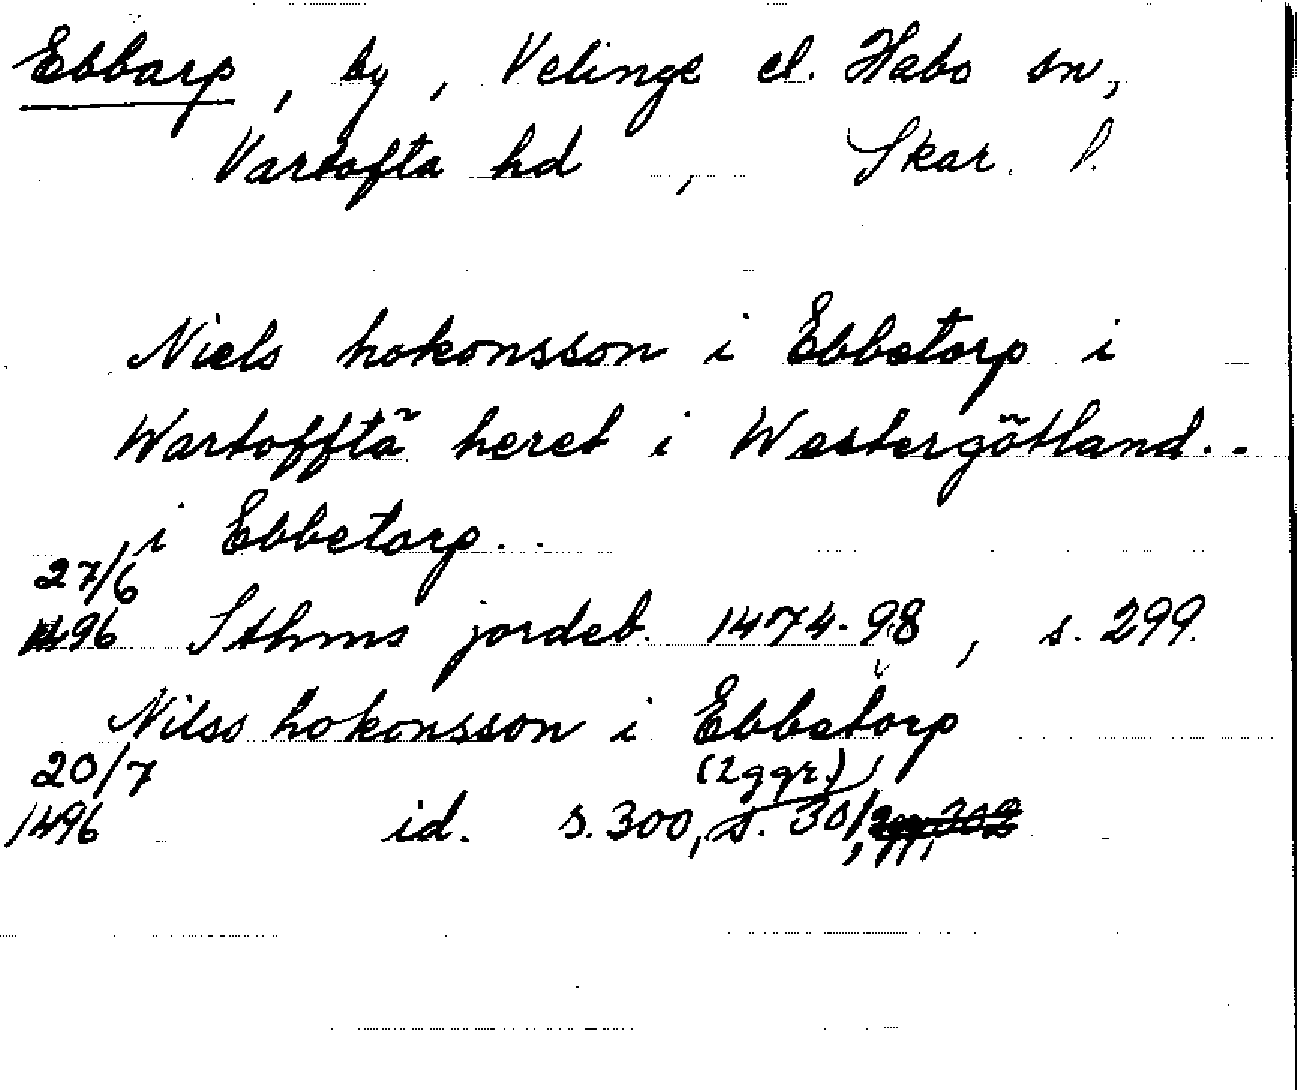 Ebbarp, by, Velinge el. Habo sn,
Vartofta hd, Skar. l.
Niels hokonsson i Ebbetorp i
Wartofftã heret i Westergötland..
i Ebbetorp..
27/6
1496 Sthms jordeb. 1474-98, s. 299.
Nilss hokonsson i Ebbetorp
20/7 (2ggr.)
1496 id. s.300, s. 301,